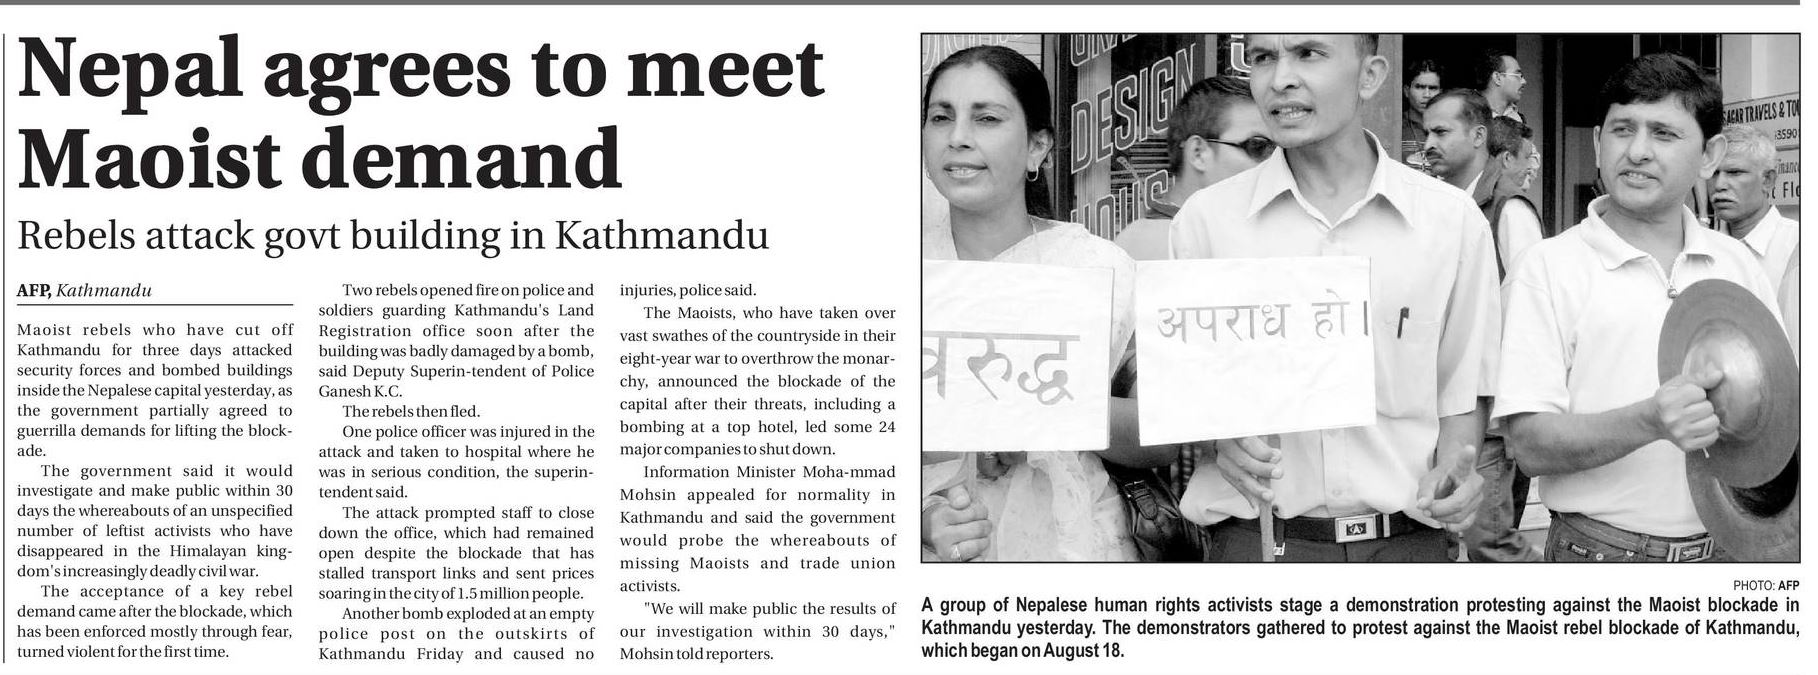 Nepal agrees to meet
Maoist demand
Rebels attack govt building in Kathmandu
AFP, Kathmandu
Maoist rebels who have cut off
Kathmandu for three days attacked
security forces and bombed buildings
inside the Nepalese capital yesterday, as
the government partially agreed to
guerrilla demands for lifting the block-
ade.
The government said it would
investigate and make public within 30
days the whereabouts of an unspecified
number of leftist activists who have
disappeared in the Himalayan king-
dom's increasingly deadly civil war.
The acceptance of a key rebel
demand came after the blockade, which
has been enforced mostly through fear,
turned violent for the first time.
Two rebels opened fire on police and
soldiers guarding Kathmandu's Land
Registration office soon after the
building was badly damaged by a bomb,
said Deputy Superin-tendent of Police
Ganesh K.C.
The rebels then fled.
One police officer was injured in the
attack and taken to hospital where he
was in serious condition, the superin-
tendent said.
The attack prompted staff to close
down the office, which had remained
open despite the blockade that has
stalled transport links and sent prices
soaring in the city of 1.5 million people.
Another bomb exploded at an empty
police post on the outskirts of
Kathmandu Friday and caused no
injuries, police said.
The Maoists, who have taken over
vast swathes of the countryside in their
eight-year war to overthrow the monar-
chy, announced the blockade of the
capital after their threats, including a
bombing at a top hotel, led some 24
major companies to shut down.
Information Minister Moha-mmad
Mohsin appealed for normality in
Kathmandu and said the government
would probe the whereabouts of
missing Maoists and trade union
activists.
"We will make public the results of
our investigation within 30 days,"
Mohsin told reporters.
DESIGN
SAGAR TRAVELS & TO
अपराध हो।
PHOTO: AFP
A group of Nepalese human rights activists stage a demonstration protesting against the Maoist blockade in
Kathmandu yesterday. The demonstrators gathered to protest against the Maoist rebel blockade of Kathmandu,
which began on August 18.